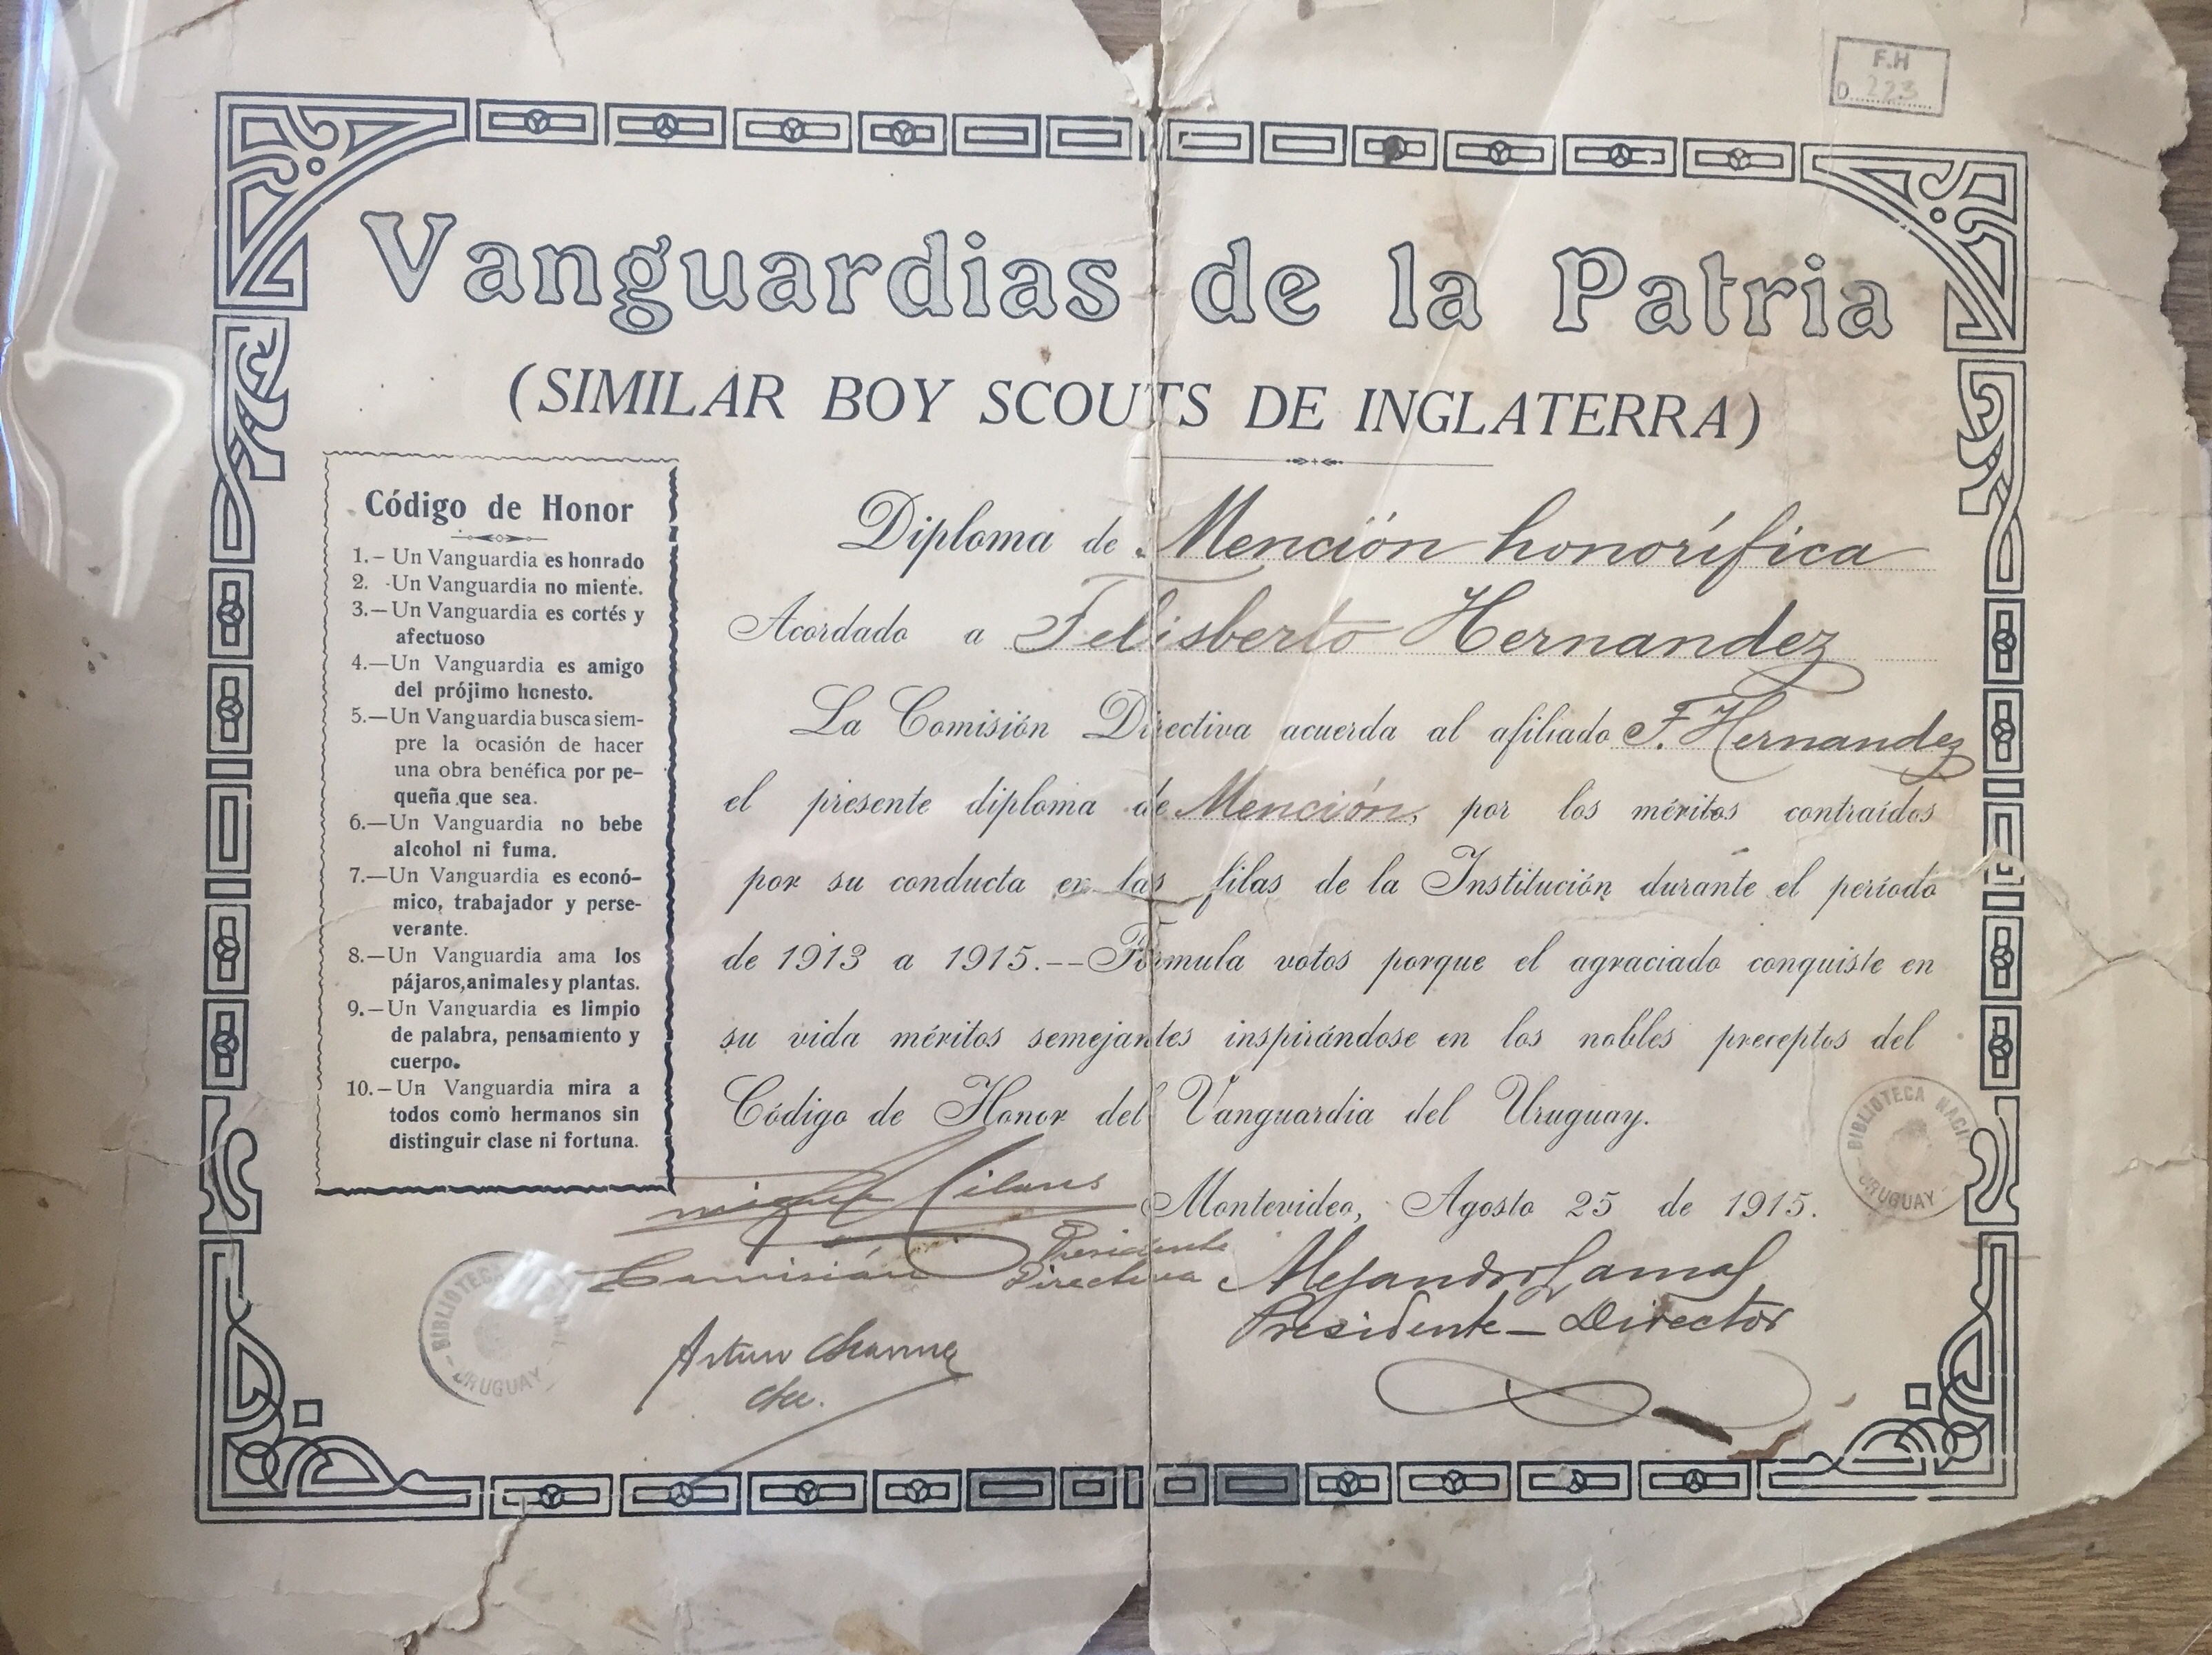 F.H
D. 223
Vanguardias de la Patria
(SIMILAR BOY SCOUTS DE INGLATERRA)
Código de Honor
1.- Un Vanguardia es honrado
2. -Un Vanguardia no miente.
3.—Un Vanguardia es cortés y
afectuoso
4.—Un Vanguardia es amigo
del prójimo honesto.
5.—Un Vanguardia busca siem-
pre la ocasión de hacer
una obra benéfica por pe-
queña que sea.
6.—Un Vanguardia no bebe
alcohol ni fuma.
7.—Un Vanguardia es econó-
mico, trabajador y perse-
verante.
8.—Un Vanguardia ama los
pájaros, animales y plantas.
9.—Un Vanguardia es limpio
de palabra, pensamiento y
cuerpo.
10.—Un Vanguardia mira a
todos como hermanos sin
distinguir clase ni fortuna.
Diploma de Mención honorífica
Acordado a Felisberto Hernandez
La Comisión Directiva acuerda al afiliado F. Hernandez
el presente diploma de Mención, por los méritos contraídos
por su conducta en las filas de la Institución durante el período
de 1913 a 1915.--Formula votos porque el agraciado conquiste en
su vida méritos semejantes inspirándose en los nobles preceptos del
Código de Honor del Vanguardia del Uruguay.
Montevideo, Agosto 25 de 1915.
Presidente
Comisión Directiva
Alejandro Lamas
Presidente - Director
Arturo
BIBLIOTECA NACI
URUGUAY
BIBLIOTECA
URUGUAY